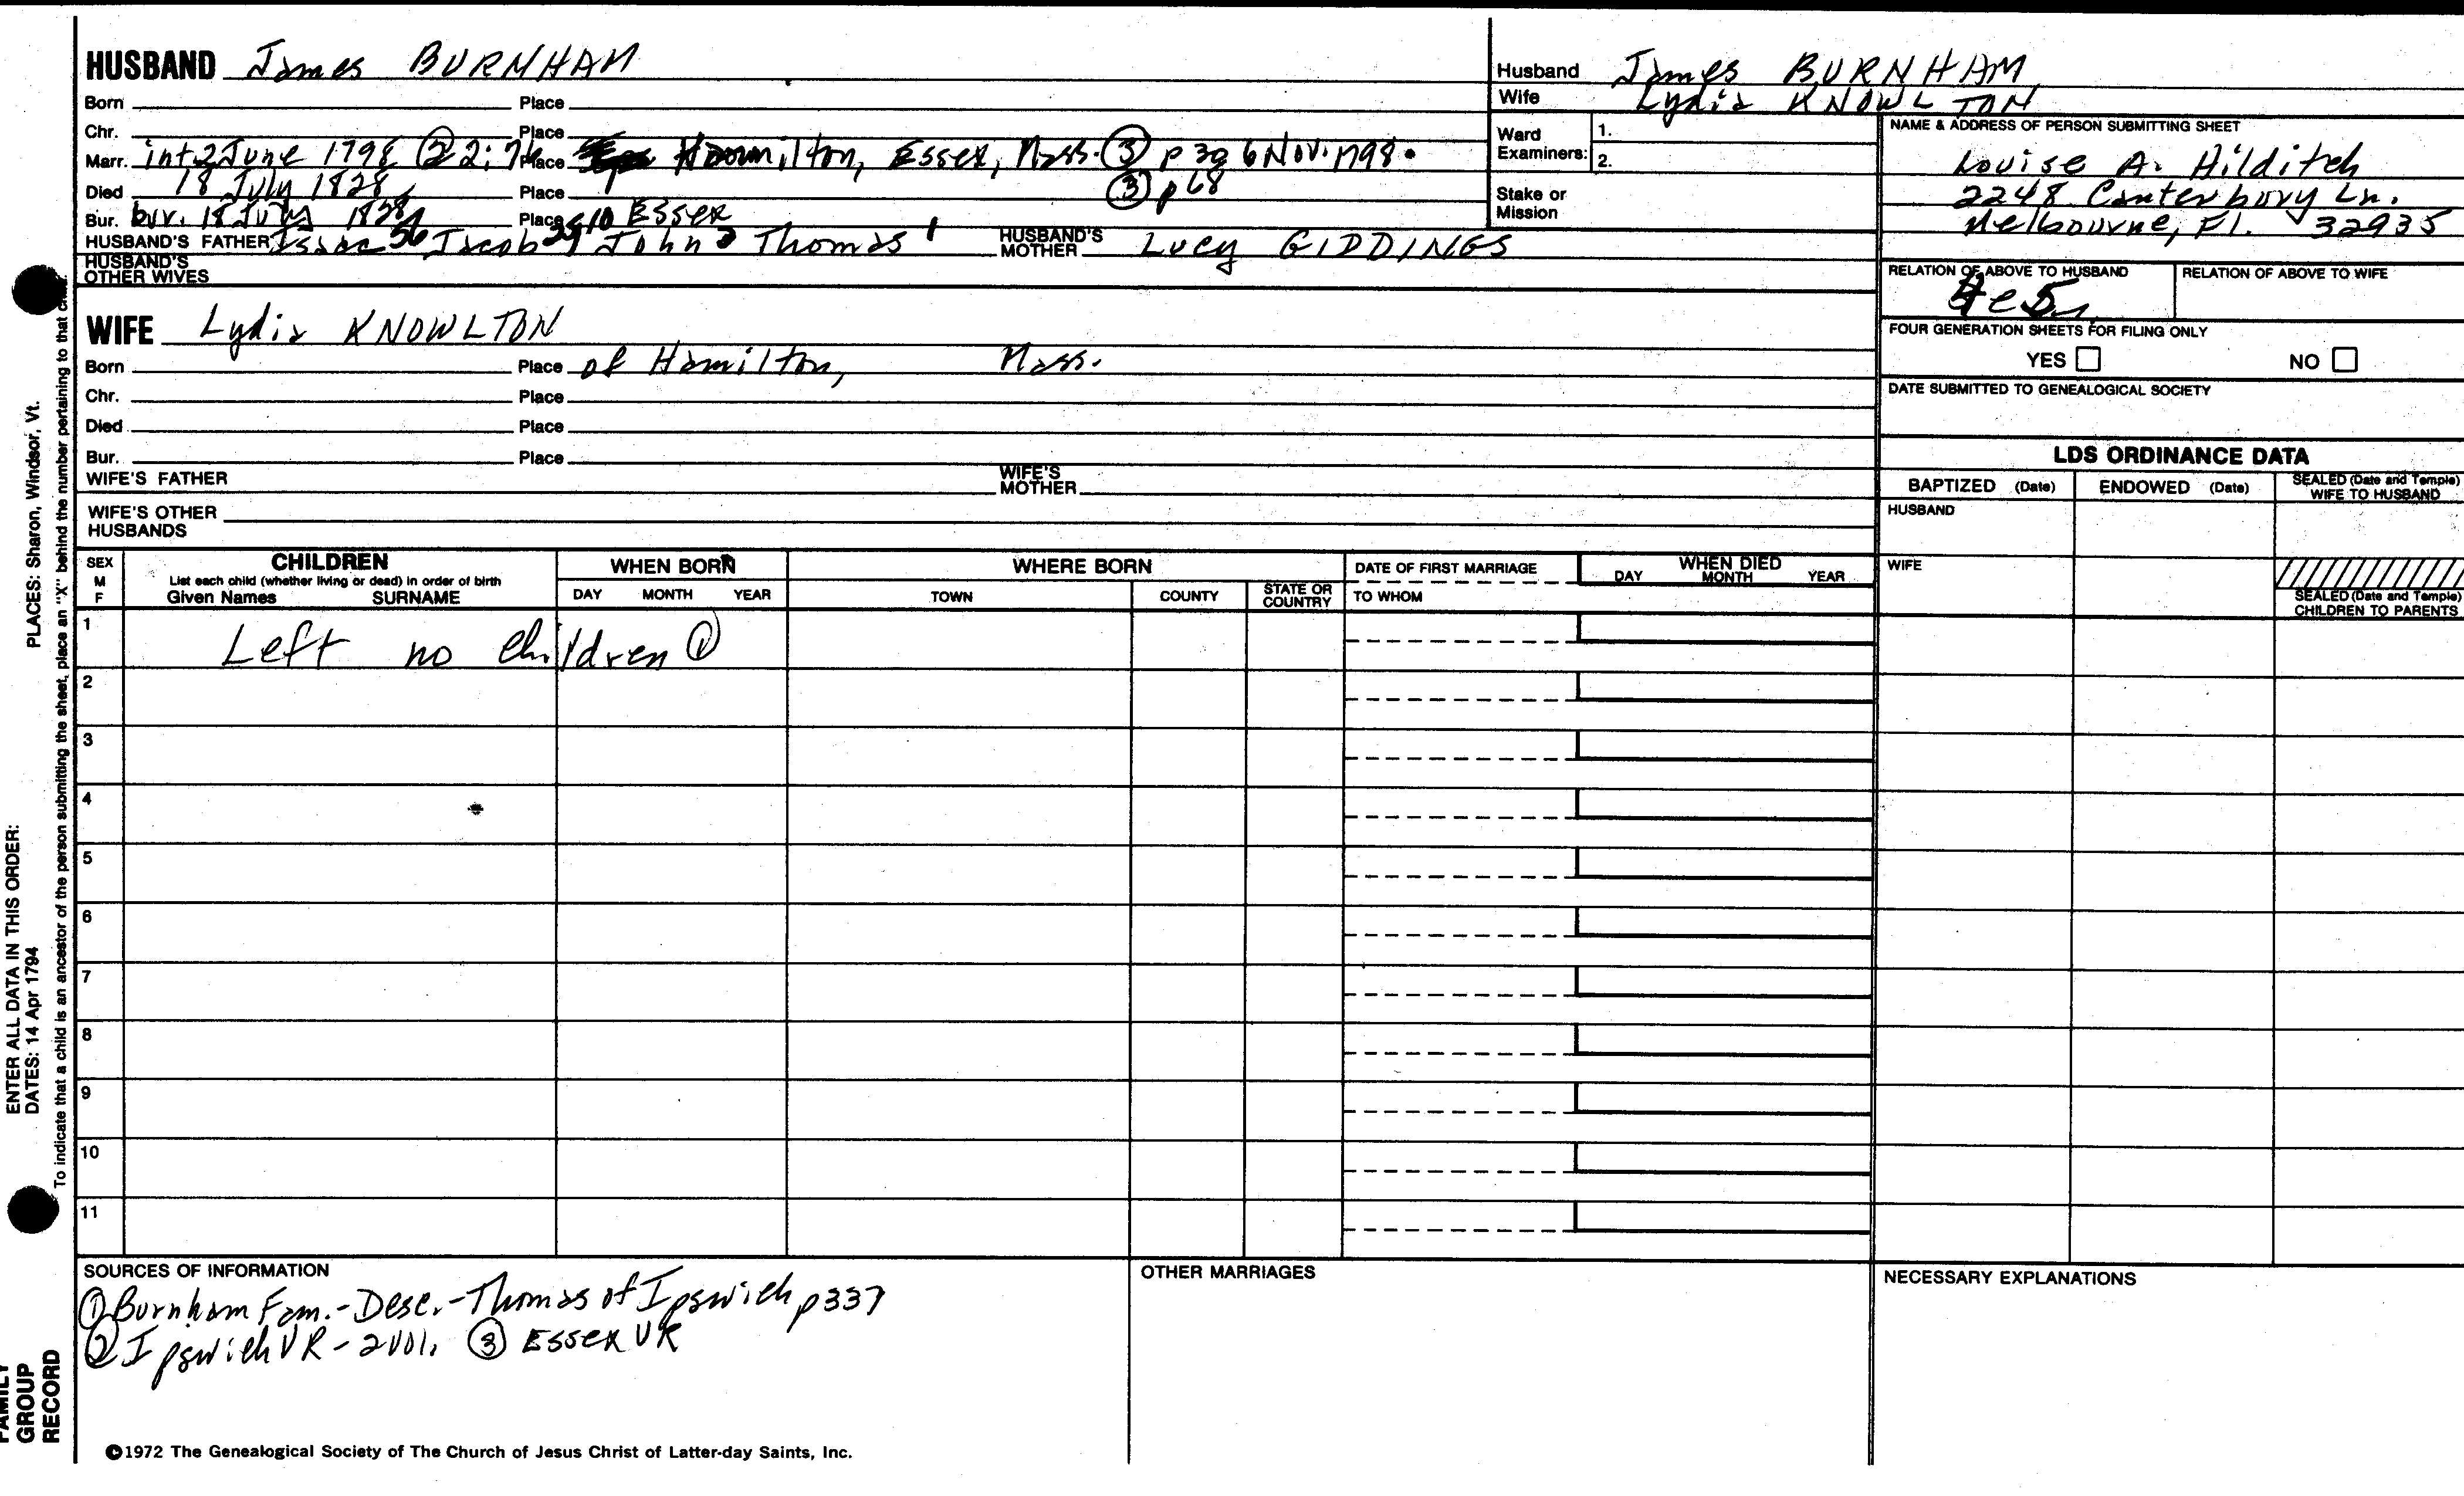 HUSBAND James BURNHAM
Born Place
Chr. Place
Marr. int 2 June 1798 ② 2:76 Place Hamilton, Essex, Mass. ③ p 39 6 Nov. 1798.
Died 18 July 1828 Place ③ p 68
Bur. bur. 18 July 1828 Place Essex
HUSBAND'S FATHER Isaac Jacob John Thomas 1 HUSBAND'S MOTHER Lucy GIDDINGS
HUSBAND'S OTHER WIVES
WIFE Lydia KNOWLTON
Born Place of Hamilton, Mass.
Chr. Place
Died Place
Bur. Place
WIFE'S FATHER WIFE'S MOTHER
WIFE'S OTHER HUSBANDS
Husband James BURNHAM
Wife Lydia KNOWLTON
Ward Examiners: 1.
2.
Stake or Mission
NAME & ADDRESS OF PERSON SUBMITTING SHEET
Louise A. Hilditch
2248 Canterbury Ln.
Melbourne, Fl. 32935
RELATION OF ABOVE TO HUSBAND RELATION OF ABOVE TO WIFE
FOUR GENERATION SHEETS FOR FILING ONLY
YES NO
DATE SUBMITTED TO GENEALOGICAL SOCIETY
LDS ORDINANCE DATA
BAPTIZED (Date) ENDOWED (Date) SEALED (Date and Temple) WIFE TO HUSBAND
HUSBAND
WIFE
SEALED (Date and Temple) CHILDREN TO PARENTS
SEX M F
CHILDREN
List each child (whether living or dead) in order of birth
Given Names SURNAME
WHEN BORN
DAY MONTH YEAR
WHERE BORN
TOWN COUNTY STATE OR COUNTRY
DATE OF FIRST MARRIAGE
TO WHOM
WHEN DIED
DAY MONTH YEAR
1 Left no children ①
2
3
4
5
6
7
8
9
10
11
SOURCES OF INFORMATION
① Burnham Fam.-Desc.-Thomas of Ipswich p337
② Ipswich VR - 2 Vol. ③ Essex VR
OTHER MARRIAGES
NECESSARY EXPLANATIONS
©1972 The Genealogical Society of The Church of Jesus Christ of Latter-day Saints, Inc.
FAMILY GROUP RECORD
ENTER ALL DATA IN THIS ORDER:
DATES: 14 Apr 1794 PLACES: Sharon, Windsor, Vt.
To indicate that a child is an ancestor of the person submitting the sheet, place an "X" behind the number pertaining to that child.